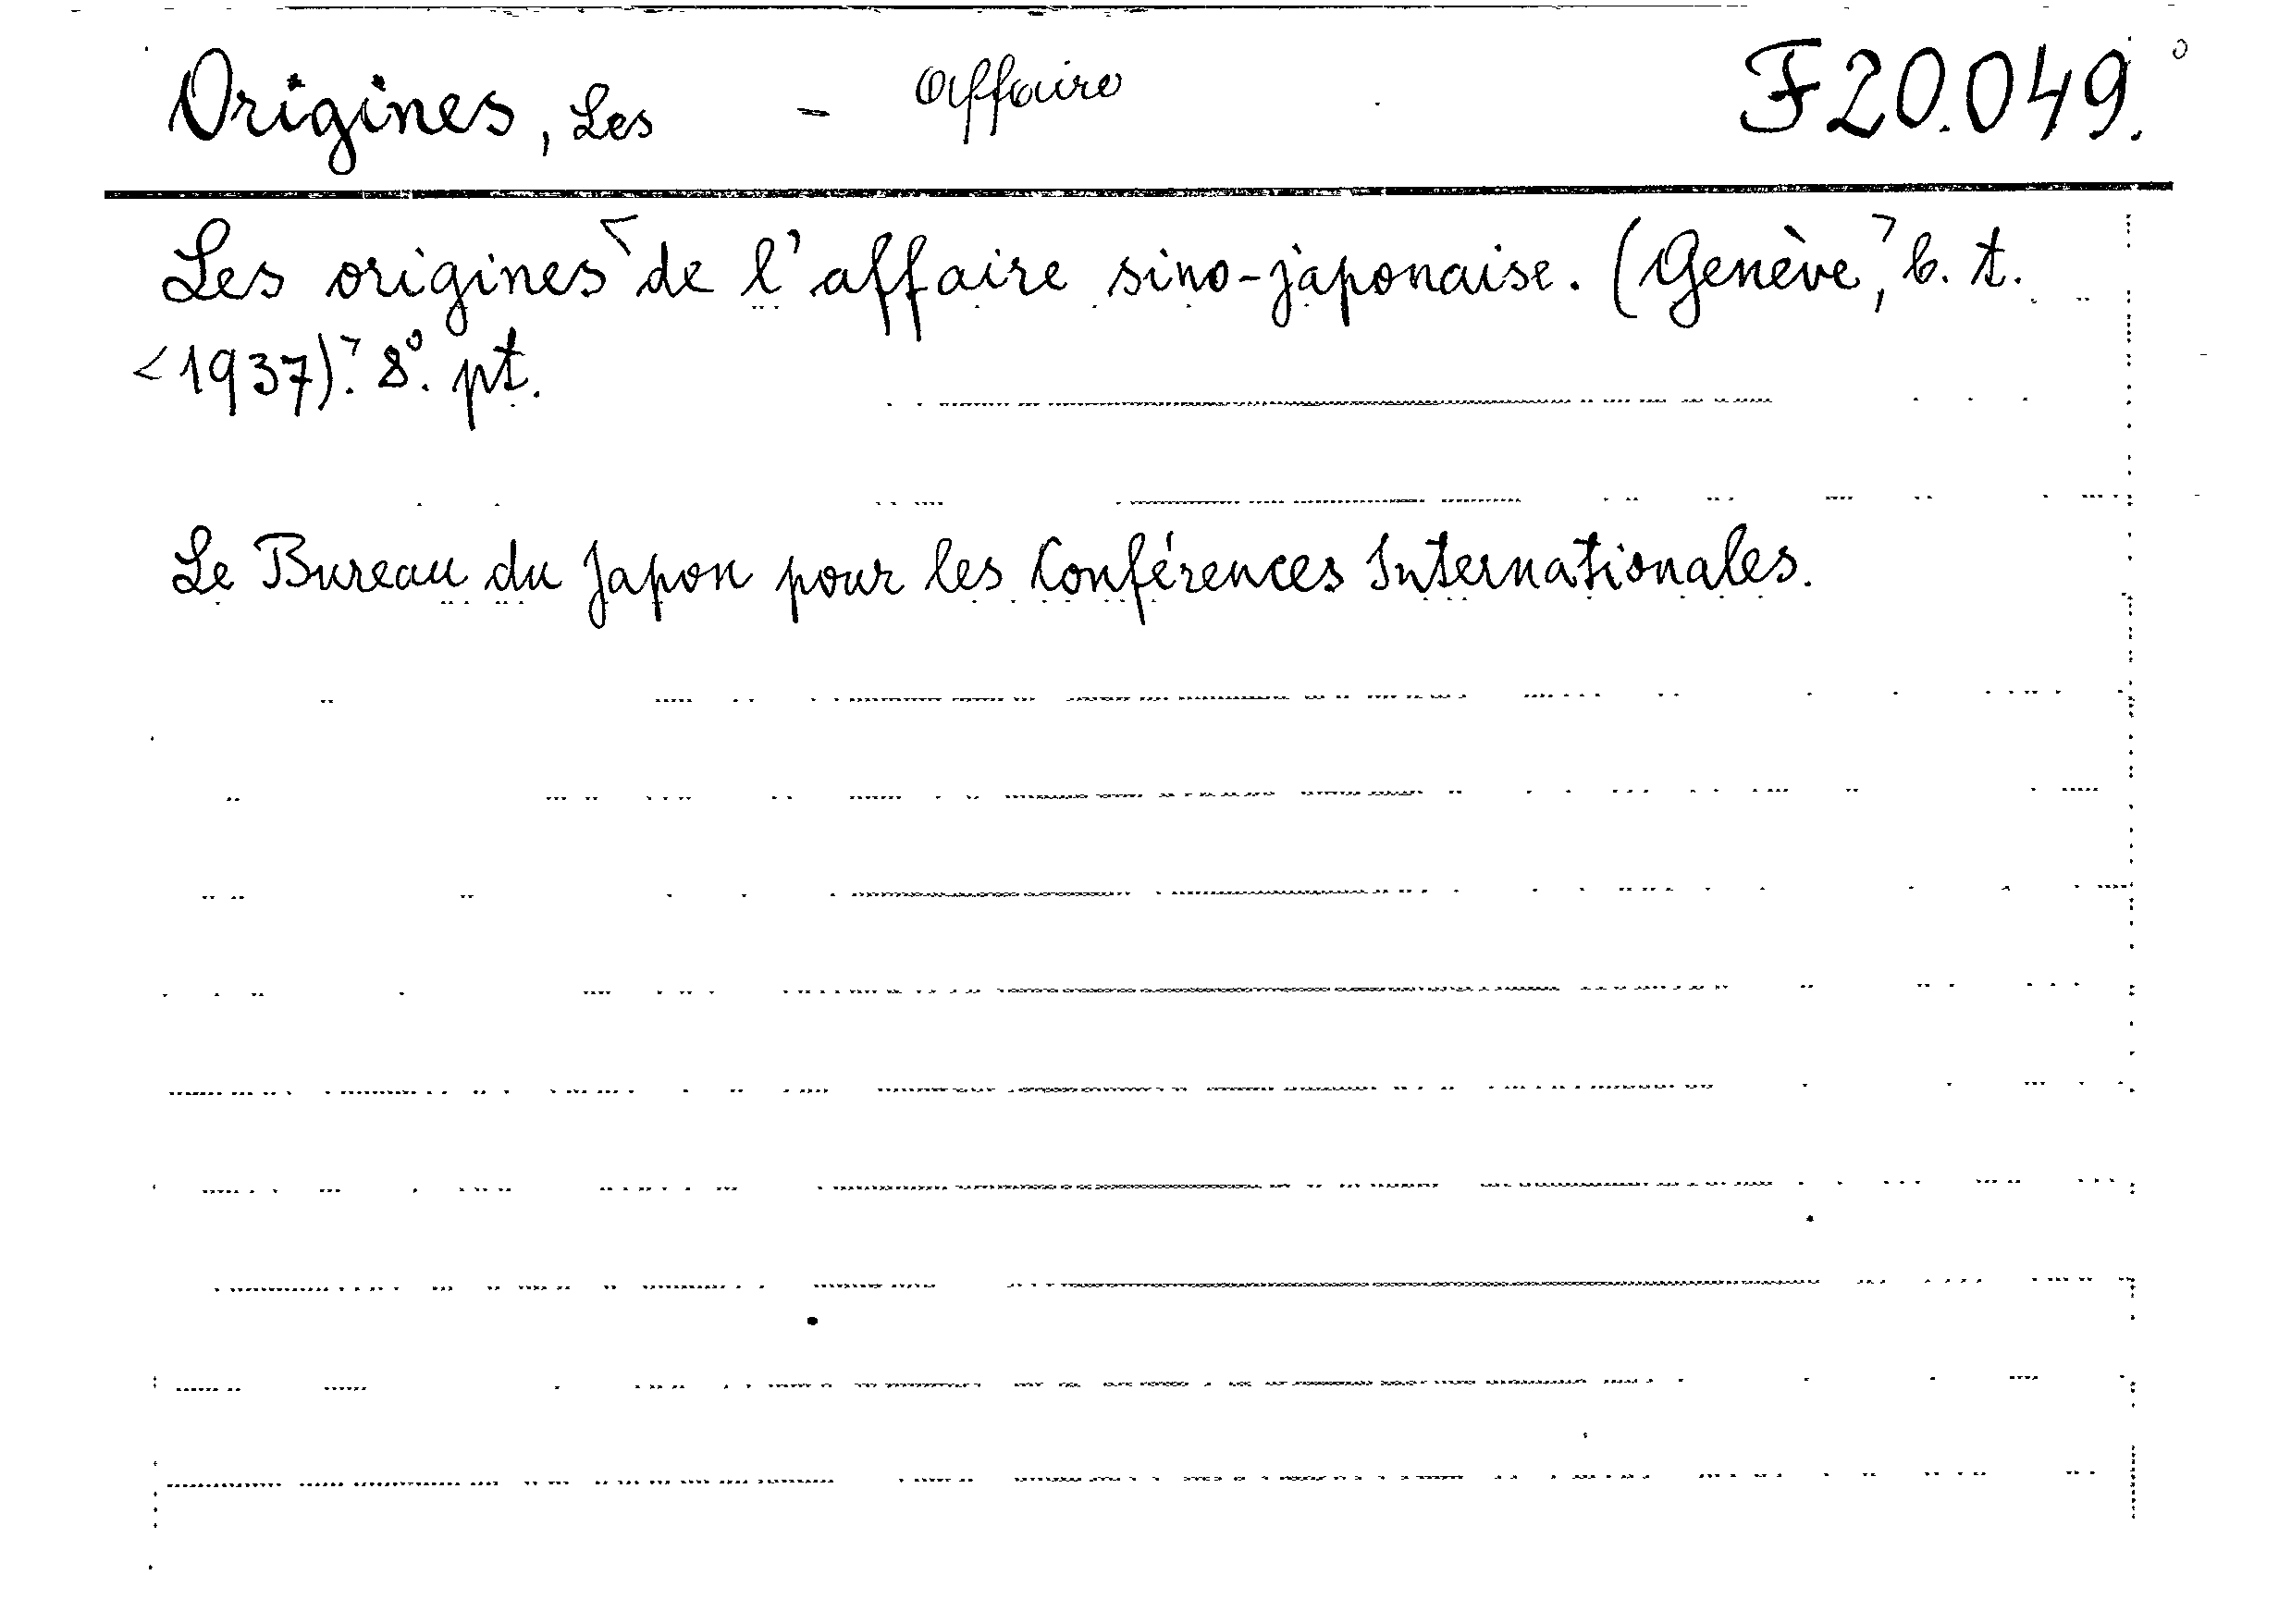 Origines, Les - Affaire F20.049.
Les origines de l'affaire sino-japonaise. (Genève, b. t.
<1937). 8°. pt.
Le Bureau du Japon pour les Conférences Internationales.